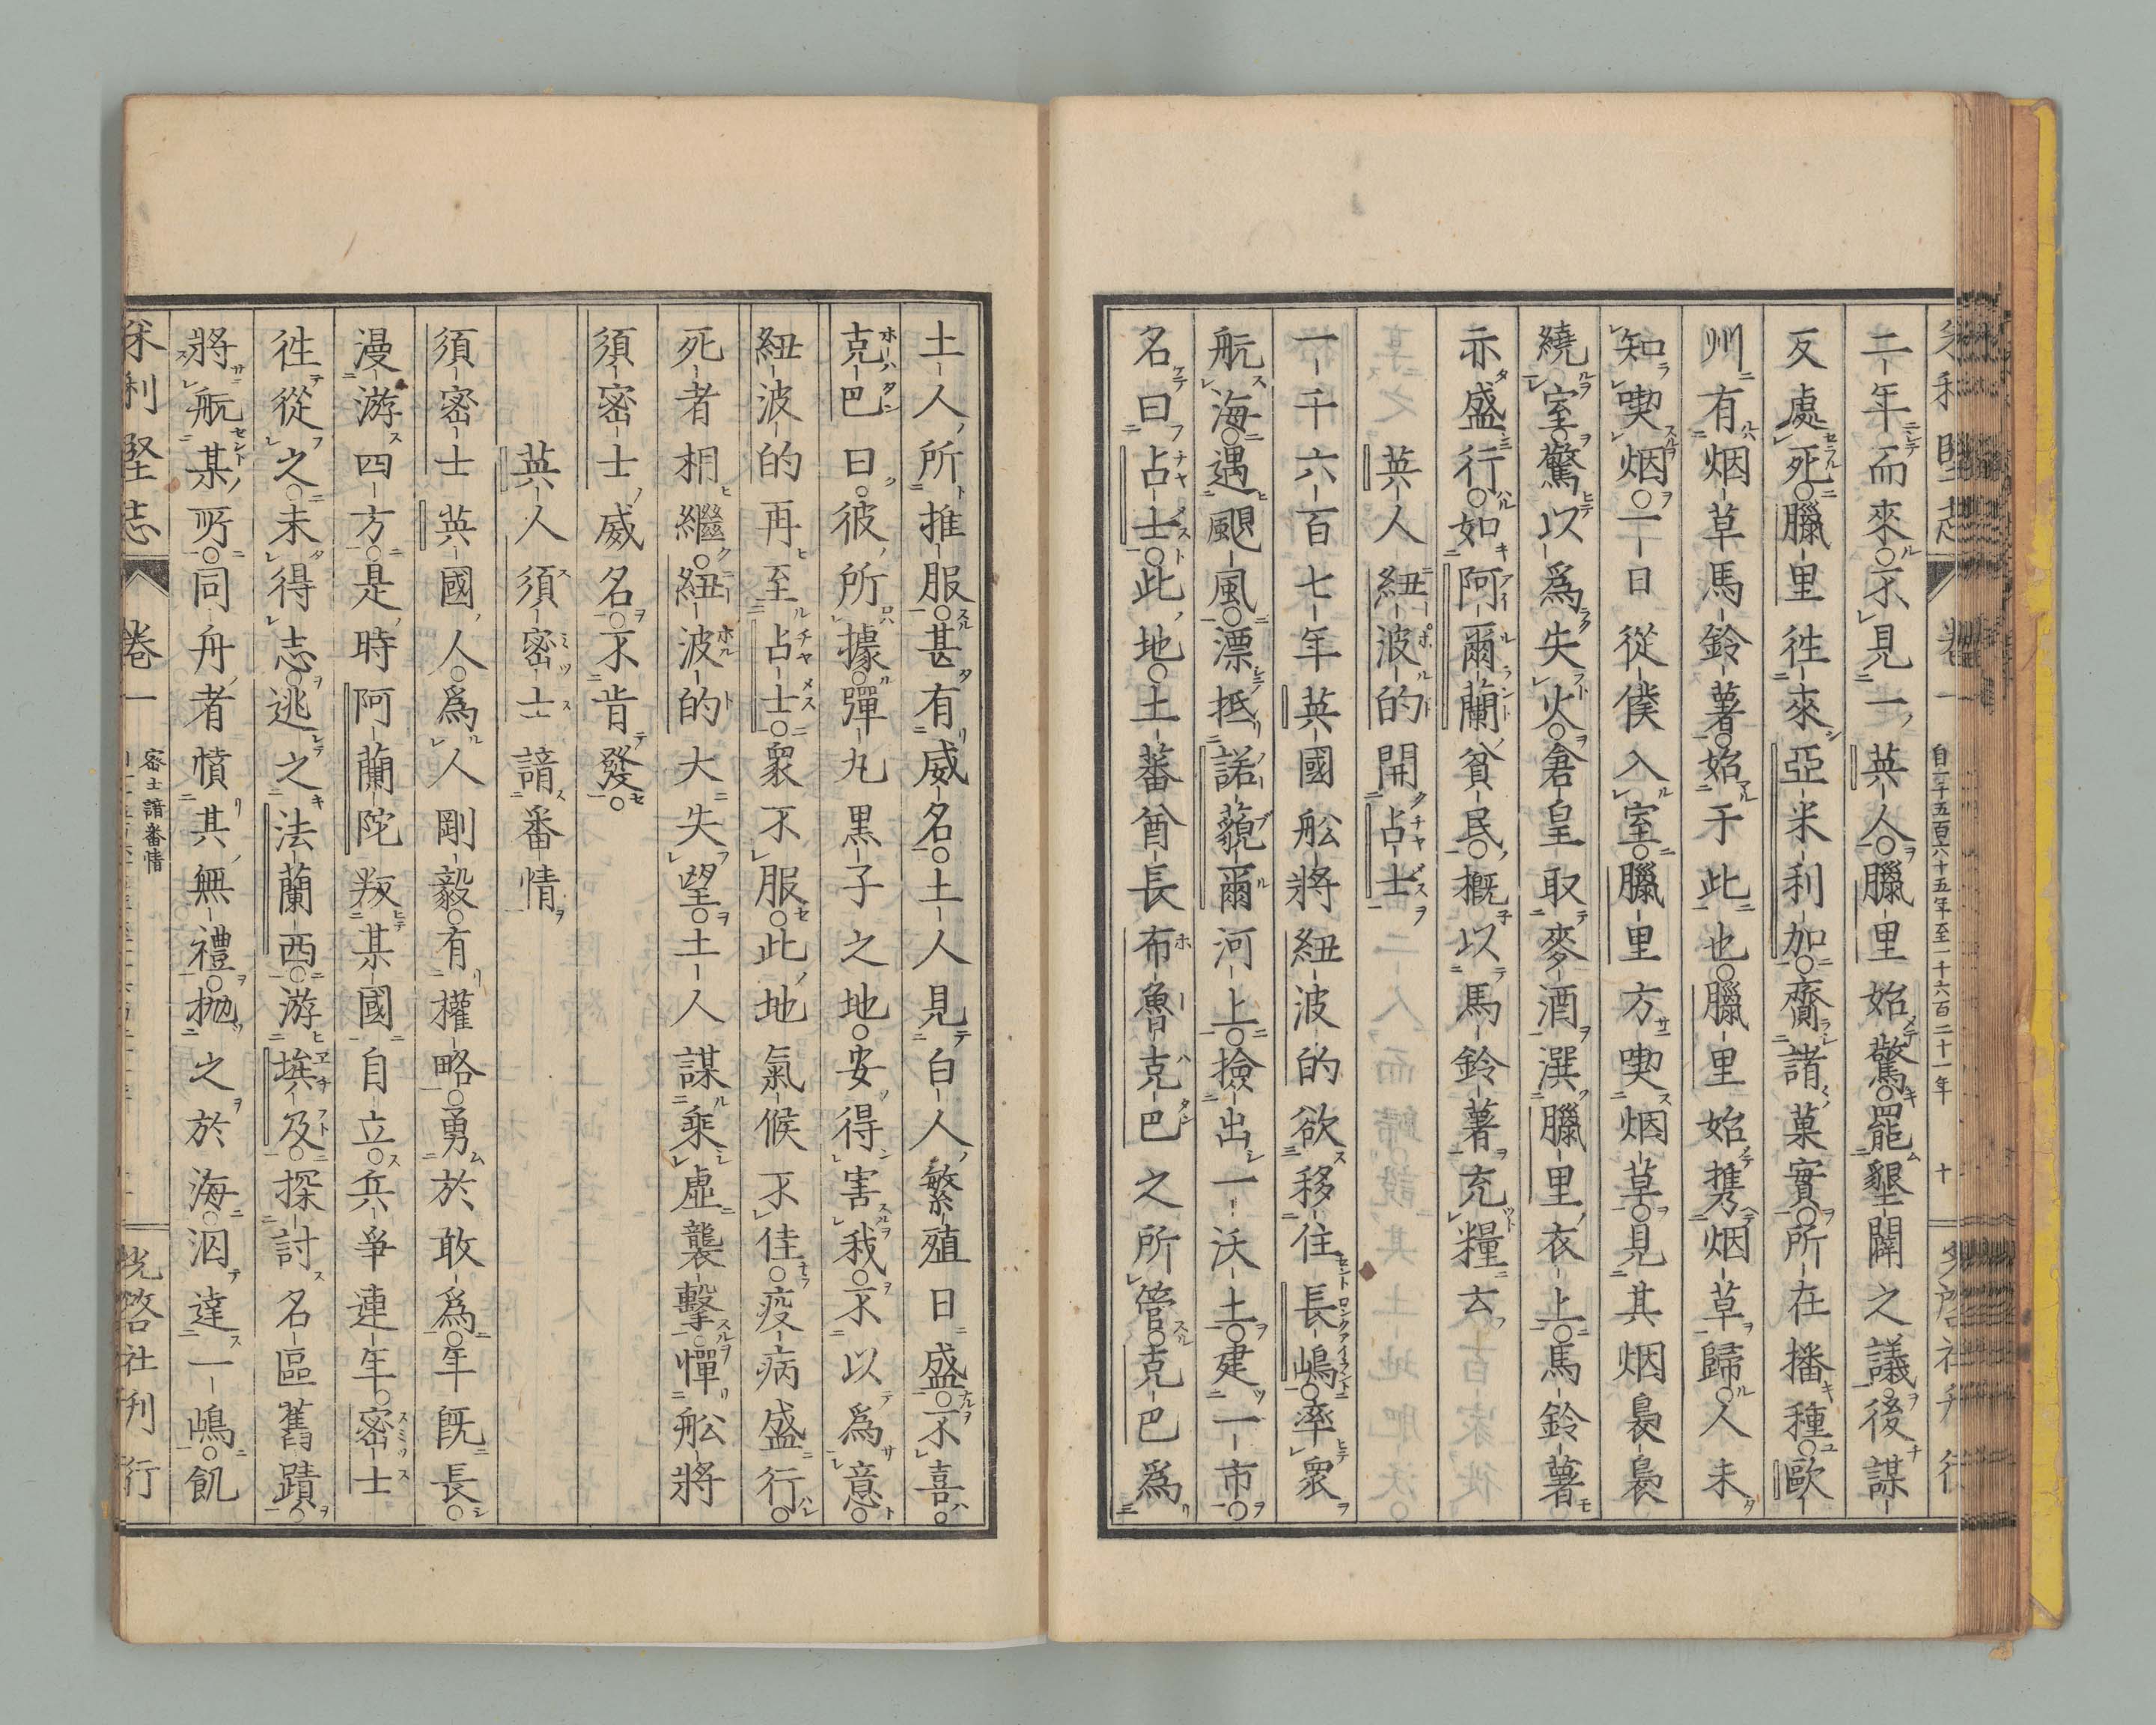 二年而來不見一英人臘里始驚罷墾闢之議後謀
反處死臘里往來亞米利加齎諸菓實所在播種歐
州有烟草馬鈴薯始于此也臘里始携烟草歸人未
知喫烟一日從僕入室臘里方喫烟草見其烟裊裊
繞室驚以爲失火倉皇取麥酒潠臘里衣上馬鈴薯
亦盛行如阿爾蘭貧民概以馬鈴薯充糧云
英人紐波的開占士
一千六百七年英國舩將紐波的欲移住長嶋率衆
航海遇颶風漂抵諾藐爾河上撿出一沃土建一市
名曰占士此地土蕃酋長布魯克巴之所管克巴爲
土人所推服甚有威名土人見白人繁殖日盛不喜
克巴曰彼所據彈丸黒子之地安得害我不以爲意
紐波的再至占士衆不服此地氣候不佳疫病盛行
死者相繼紐波的大失望土人謀乘虛襲擊憚舩將
須密士威名不肯發
英人須密士諳番情
須密士英國人爲人剛毅有權略勇於敢爲年既長
漫游四方是時阿蘭陀叛某國自立兵爭連年密士
往從之未得志逃之法蘭西游埃及探討名區舊蹟
將航某所同舟者憤其無禮抛之於海泅達一嶋飢
米利堅志 卷一 密士諳番情 光啓社刊行